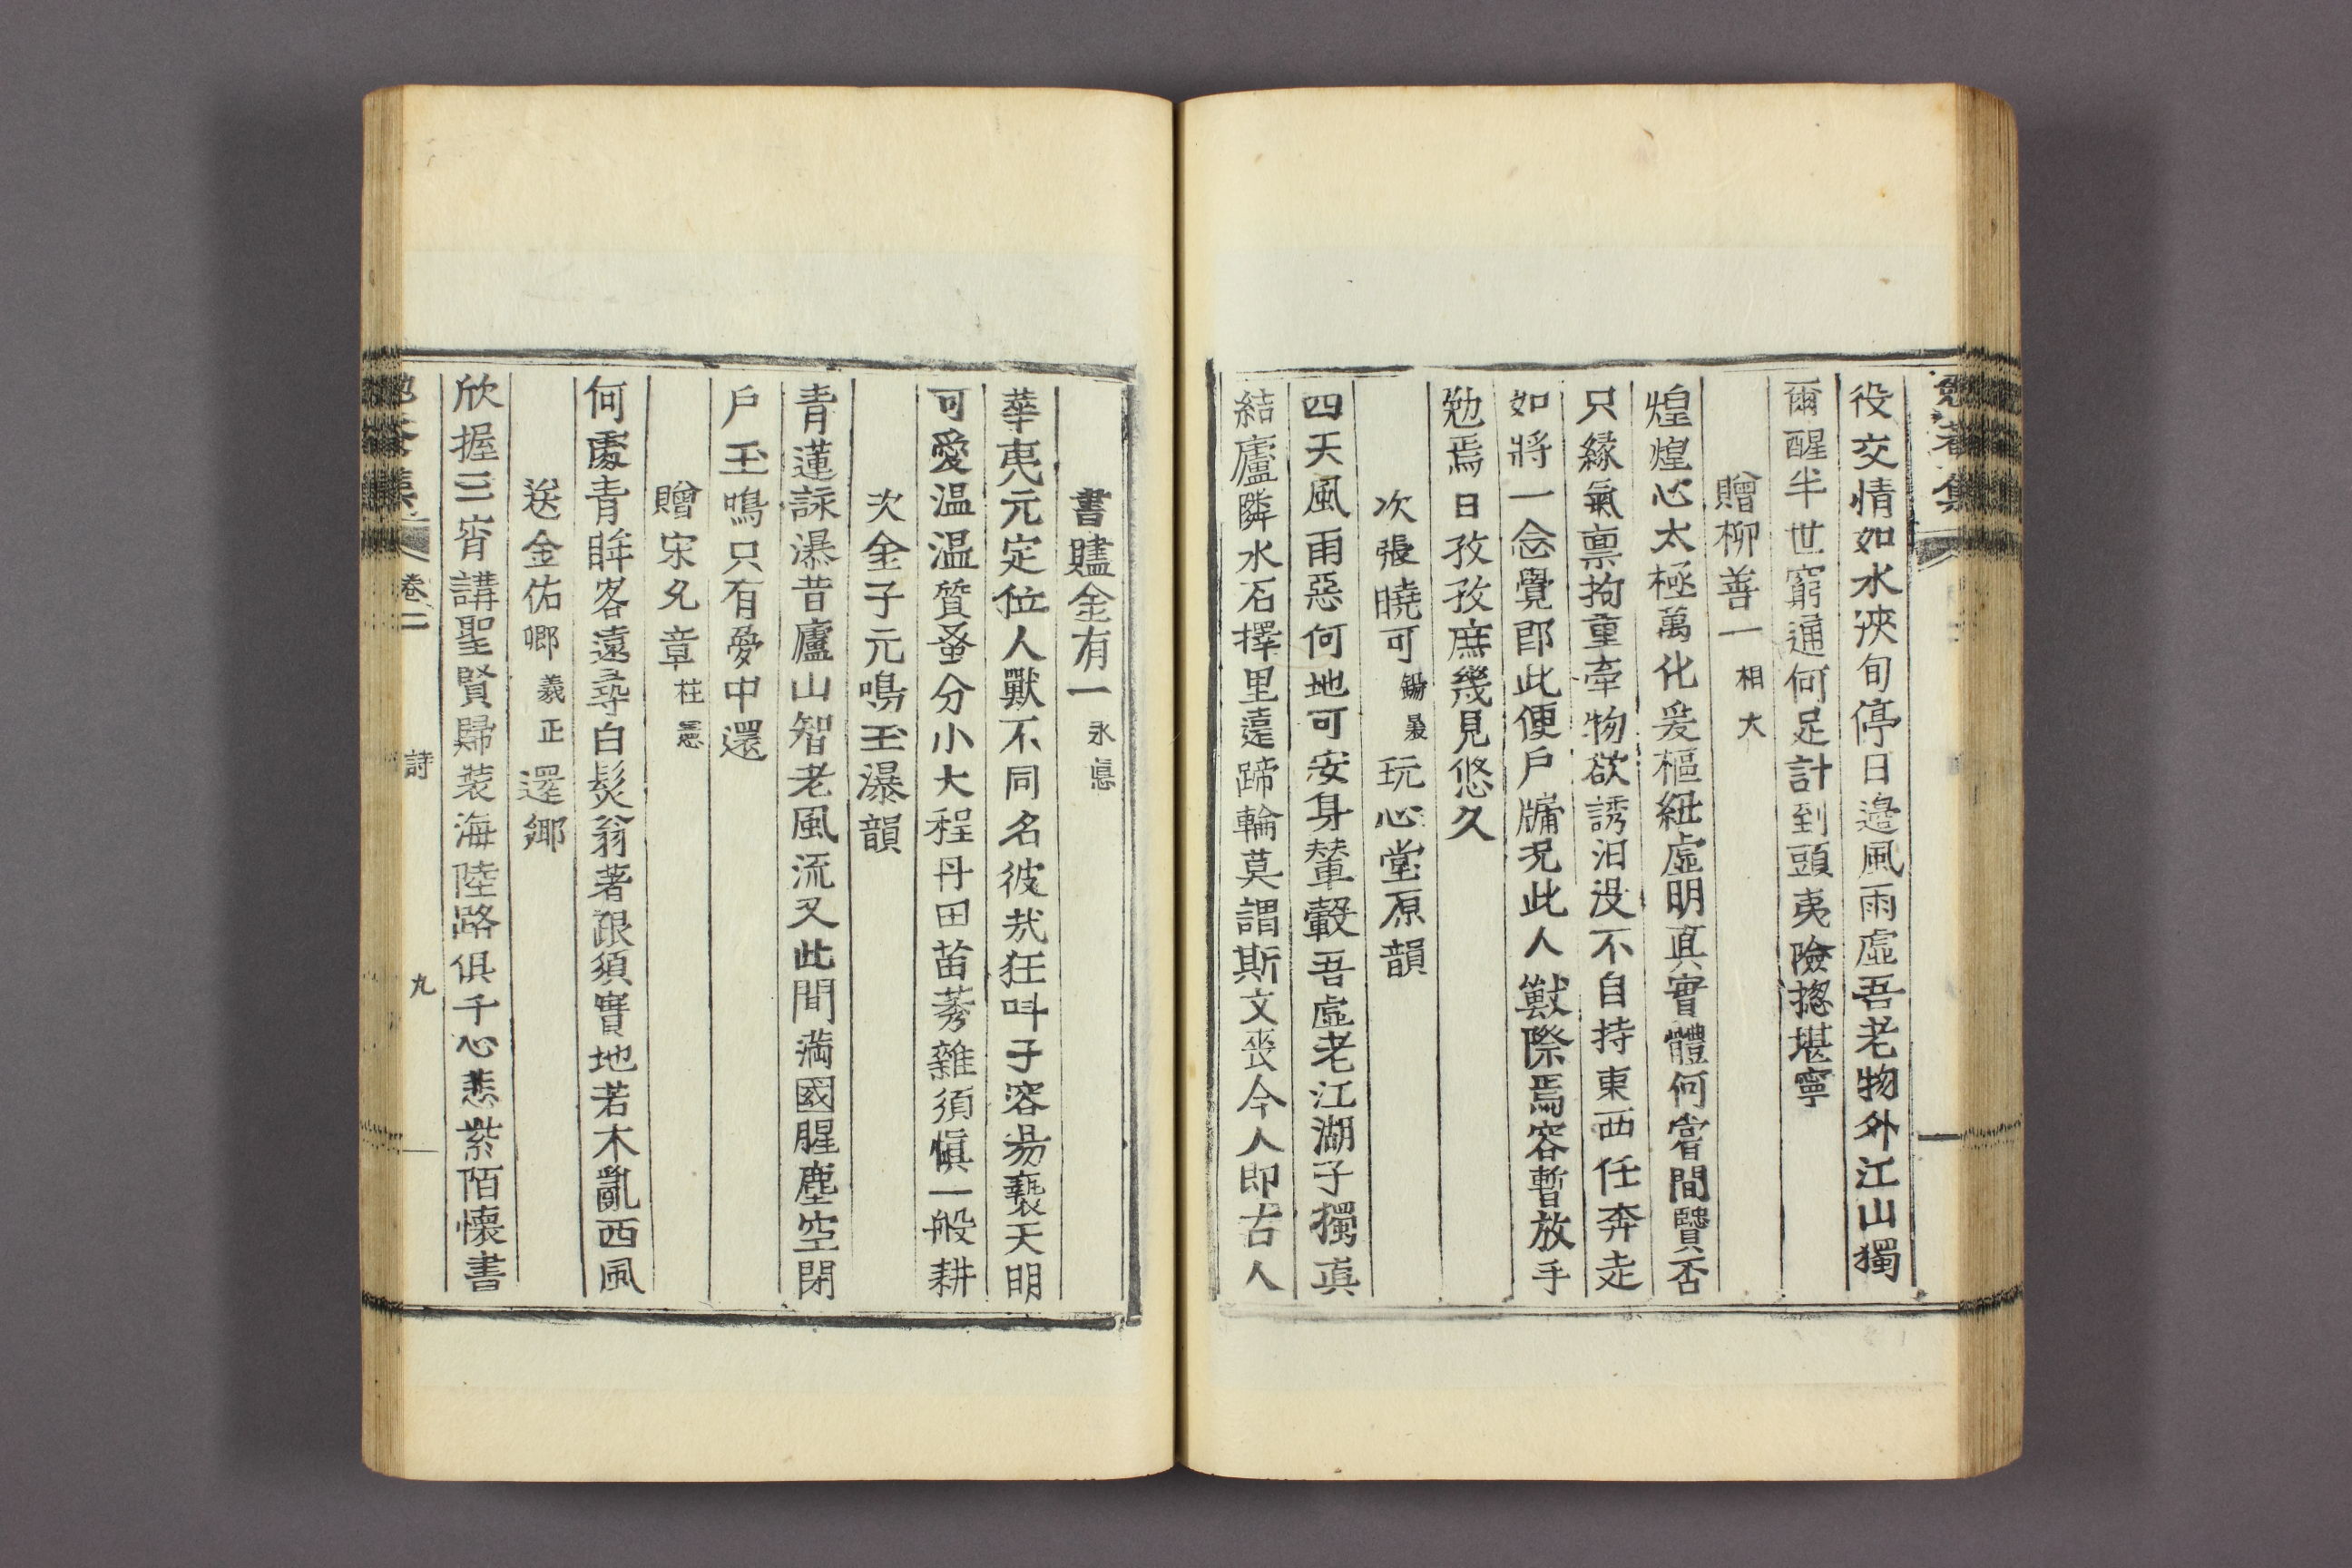 役交情如水浹旬停日邊風雨虛吾老物外江山獨
爾醒半世窮通何足計到頭夷險摠堪寧
贈柳善一 相大
煌煌心太極萬化爰樞紐虛明眞實體何嘗間賢否
只緣氣禀拘重牽物欲誘汨沒不自持東西任奔走
如將一念覺卽此便戶牖況此人獸際焉容暫放手
勉焉日孜孜庶幾見悠久
次張曉可 錫 玩心堂原韻
四天風雨惡何地可安身輦轂吾虛老江湖子獨眞
結廬隣水石擇里遠蹄輪莫謂斯文喪今人卽古人
書贐金有一 永悳
華夷元定位人獸不同名彼哉狂叫子容易褻天明
可愛溫溫質蚤分小大程丹田苗莠雜須愼一般耕
次金子元鳴玉瀑韻
靑蓮詠瀑昔廬山智老風流又此間滿國腥塵空閉
戶玉鳴只有夢中還
贈宋允章 柱憲
何處靑眸客遠尋白髮翁著跟須實地若木亂西風
送金佑卿 羲正 還鄕
欣握三宵講聖賢歸裝海陸路俱千心悲紫陌懷書
卷二
詩
九